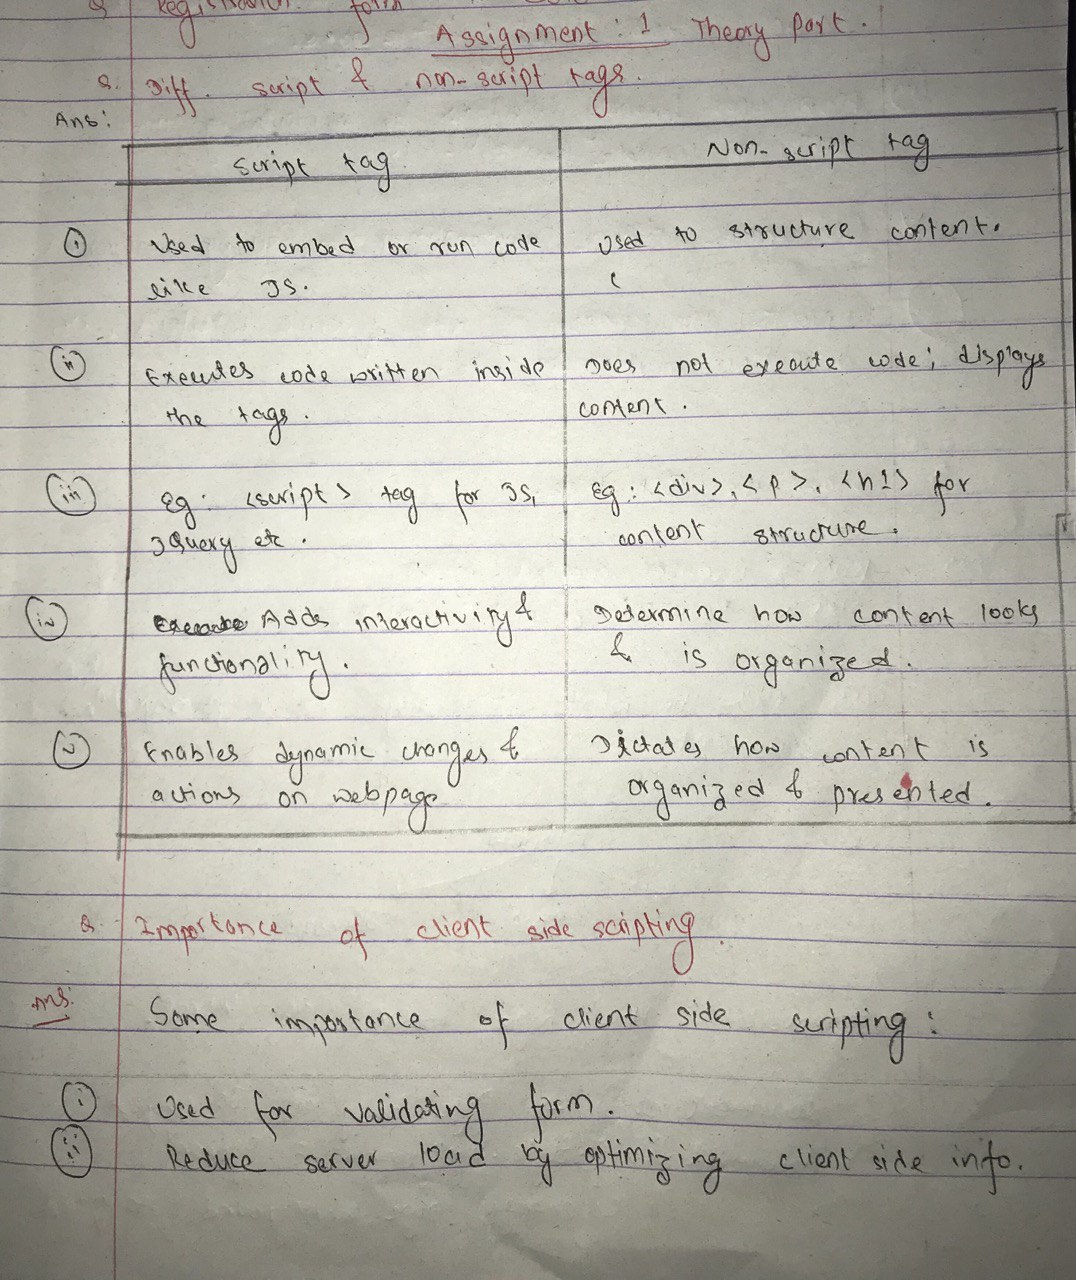 Q Registration form
Assignment : 1 Theory Part.
Q. Diff. script & non-script tags.
Ans:
Script tag
Non-script tag
(i) Used to embed or run code
like JS.
Used to structure content.
(ii) Executes code written inside
the tags.
Does not execute code; displays
content.
(iii) Eg: <script> tag for JS,
JQuery etc.
Eg: <div>, <p>, <h1> for
content structure.
(iv) Adds interactivity &
functionality.
Determine how content looks
& is organized.
(v) Enables dynamic changes &
actions on webpage
Dictates how content is
organized & presented.
Q. Importance of client side scripting.
Ans:
Some importance of client side scripting:
(i) Used for validating form.
(ii) Reduce server load by optimizing client side info.